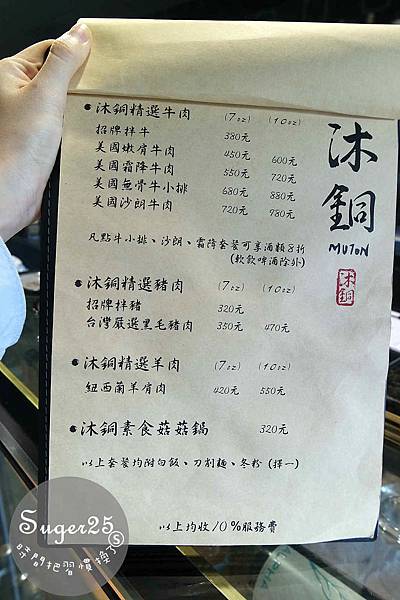 沐銅精選牛肉 (7oz) (10oz)
招牌拌牛 380元
美國嫩肩牛肉 450元 600元
美國霜降牛肉 550元 720元
美國無骨牛小排 680元 880元
美國沙朗牛肉 720元 980元
凡點牛小排、沙朗、霜降套餐可享酒類8折
(軟飲啤酒除外)
沐銅精選豬肉 (7oz) (10oz)
招牌拌豬 320元
台灣嚴選黑毛豬肉 350元 470元
沐銅精選羊肉 (7oz) (10oz)
紐西蘭羊肩肉 420元 550元
沐銅素食菇菇鍋 320元
以上套餐均附白飯、刀削麵、冬粉(擇一)
以上均收10%服務費
沐銅
MUTON
沐銅
Suger25
時間把習慣換了